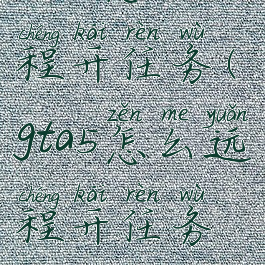 chéng kāi rèn wù
程开任务(
zěn me yuǎn
gta5怎么远
chéng kāi rèn wù
程开任务